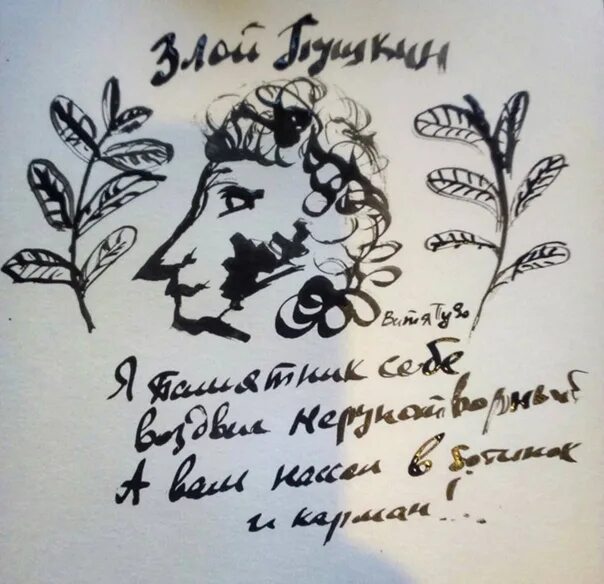 Злой Пушкин
Витя Пузо
Я памятник себе
воздвиг нерукотворный
А вам нассал в ботинок
и карман!...